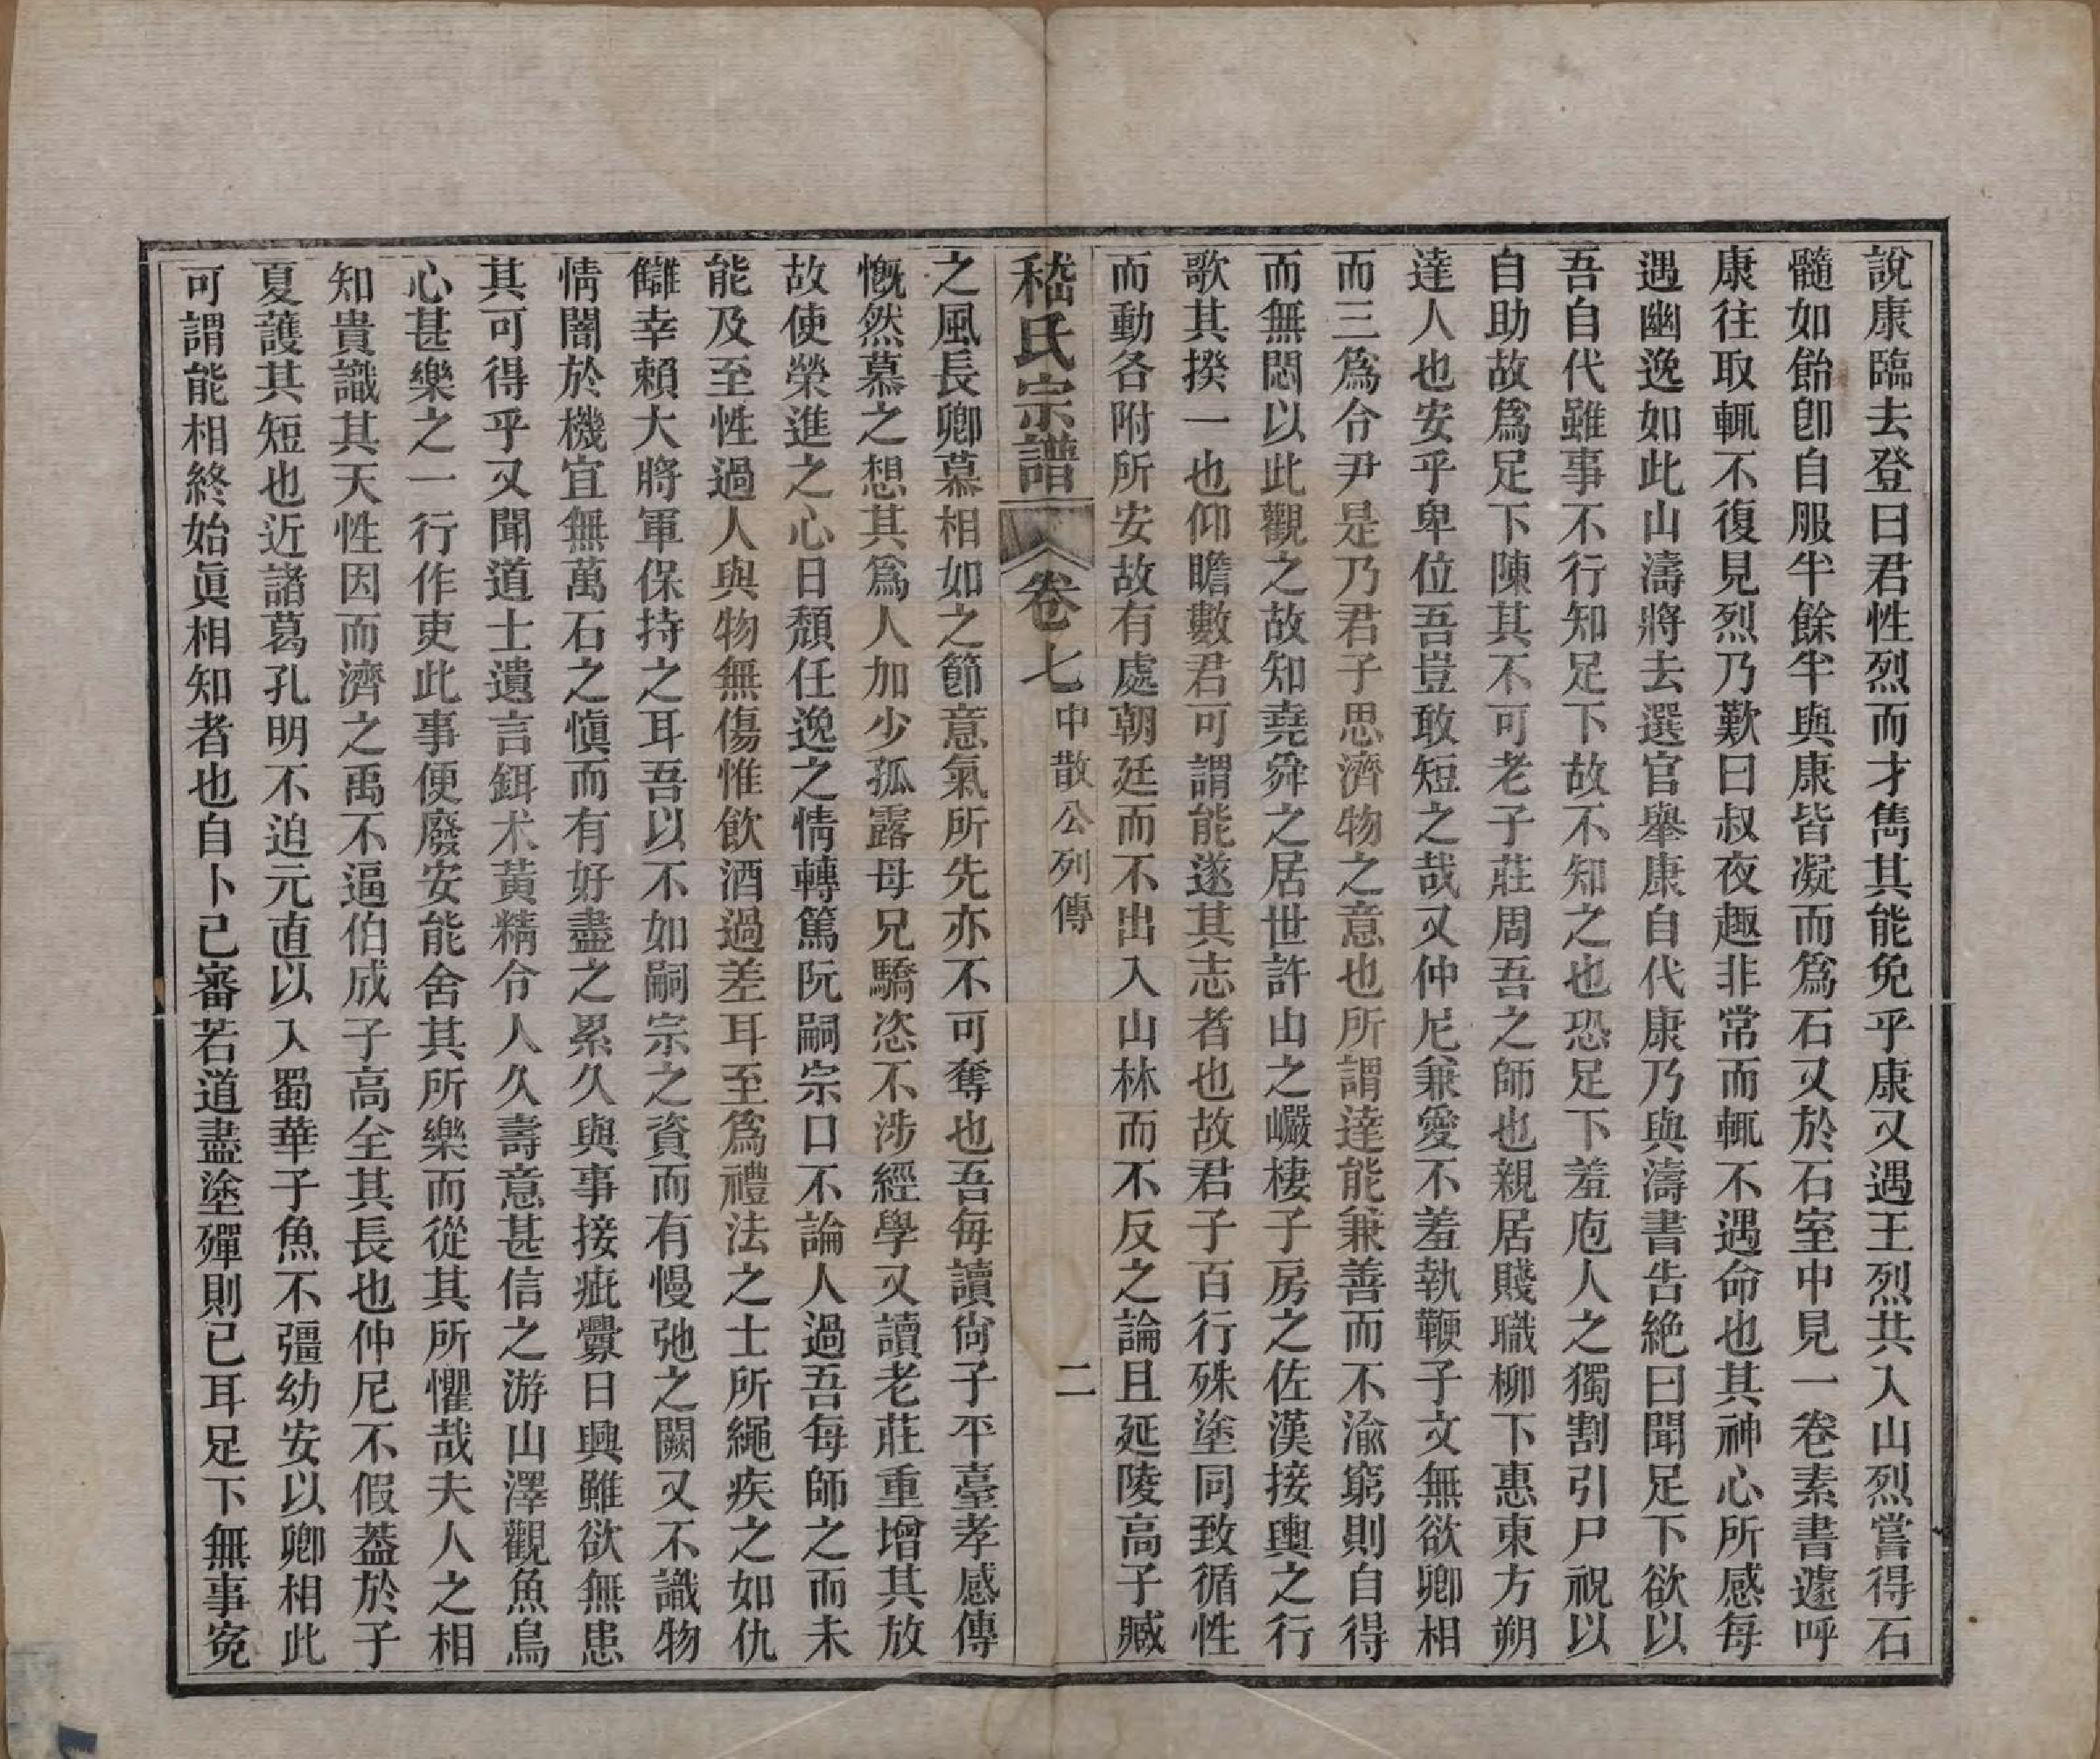 說康臨去登曰君性烈而才雋其能免乎康又遇王烈共入山烈嘗得石
髓如飴卽自服半餘半與康皆凝而爲石又於石室中見一卷素書遽呼
康往取輒不復見烈乃歎曰叔夜趣非常而輒不遇命也其神心所感每
遇幽逸如此山濤將去選官舉康自代康乃與濤書告絶曰聞足下欲以
吾自代雖事不行知足下故不知之也恐足下羞庖人之獨割引尸祝以
自助故爲足下陳其不可老子莊周吾之師也親居賤職柳下惠東方朔
達人也安乎卑位吾豈敢短之哉又仲尼兼愛不羞執鞭子文無欲卿相
而三爲令尹是乃君子思濟物之意也所謂達能兼善而不渝窮則自得
而無悶以此觀之故知堯舜之居世許由之巖棲子房之佐漢接輿之行
歌其揆一也仰瞻數君可謂能遂其志者也故君子百行殊塗同致循性
而動各附所安故有處朝廷而不出入山林而不反之論且延陵高子臧
嵇氏宗譜 卷七 中散公列傳 二
之風長卿慕相如之節意氣所先亦不可奪也吾每讀尙子平臺孝感傳
慨然慕之想其爲人加少孤露母兄驕恣不涉經學又讀老莊重增其放
故使榮進之心日頽任逸之情轉篤阮嗣宗口不論人過吾每師之而未
能及至性過人與物無傷惟飲酒過差耳至爲禮法之士所繩疾之如仇
讎幸賴大將軍保持之耳吾以不如嗣宗之資而有慢弛之闕又不識物
情闇於機宜無萬石之愼而有好盡之累久與事接疵釁日興雖欲無患
其可得乎又聞道士遺言餌朮黃精令人久壽意甚信之游山澤觀魚鳥
心甚樂之一行作吏此事便廢安能舍其所樂而從其所懼哉夫人之相
知貴識其天性因而濟之禹不逼伯成子高全其長也仲尼不假葢於子
夏護其短也近諸葛孔明不迫元直以入蜀華子魚不彊幼安以卿相此
可謂能相終始眞相知者也自卜已審若道盡塗殫則已耳足下無事寃